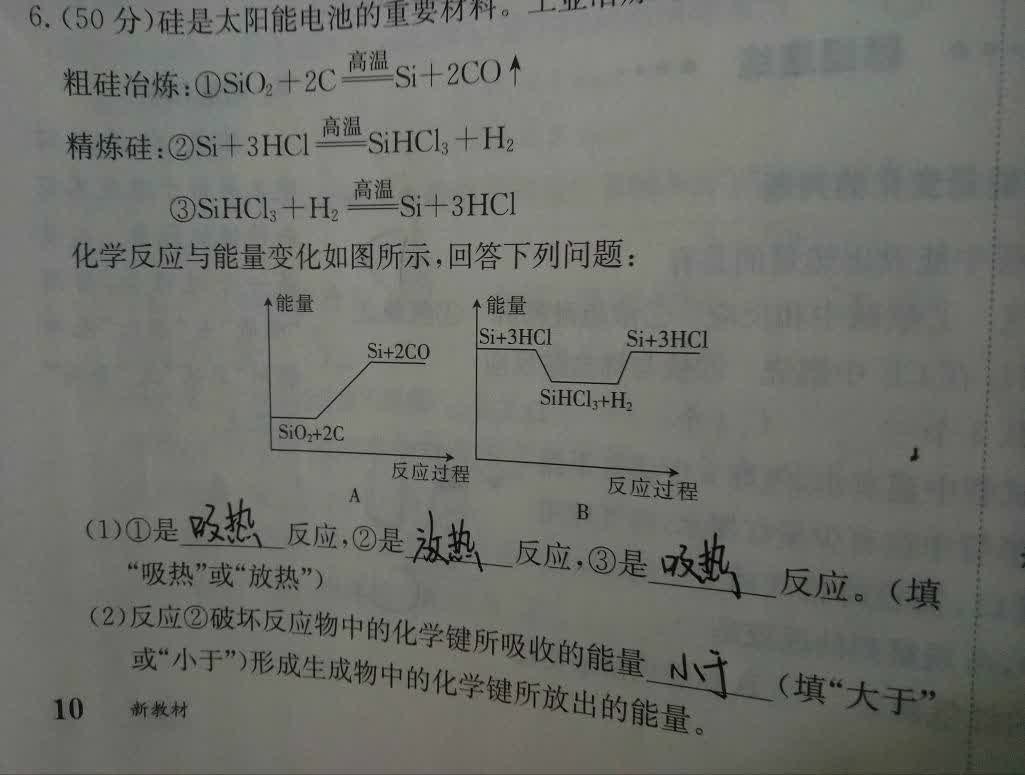 6.(50分)硅是太阳能电池的重要材料。工业
粗硅冶炼:①SiO₂+2C 高温 Si+2CO↑
精炼硅:②Si+3HCl 高温 SiHCl₃+H₂
③SiHCl₃+H₂ 高温 Si+3HCl
化学反应与能量变化如图所示,回答下列问题:
能量
Si+2CO
SiO₂+2C
反应过程
A
能量
Si+3HCl
Si+3HCl
SiHCl₃+H₂
反应过程
B
(1)①是吸热反应,②是放热反应,③是吸热反应。(填
“吸热”或“放热”)
(2)反应②破坏反应物中的化学键所吸收的能量小于(填“大于”
或“小于”)形成生成物中的化学键所放出的能量。
10 新教材